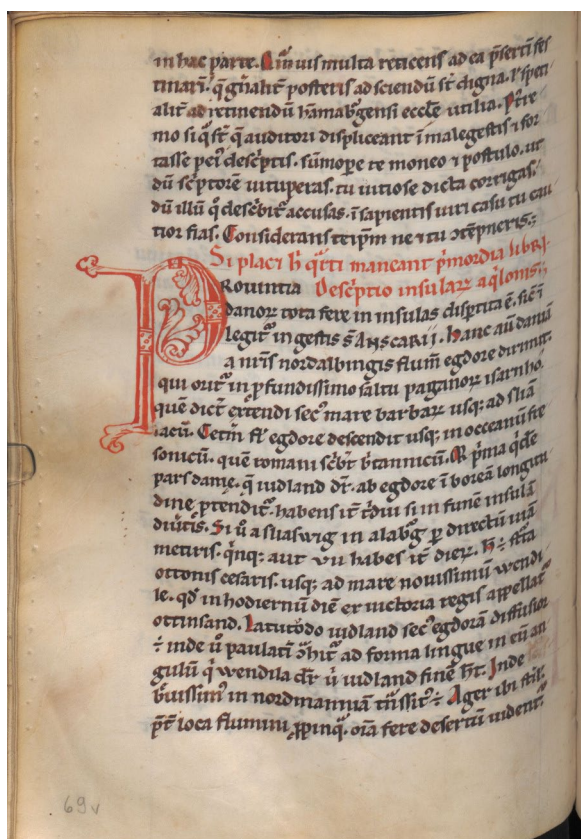 in hac parte. Qm̄ uis multa reticens ad ea p̄sertī fes
tinari. q̄ gn̄alit̄ posteris ad sciendū st̄ digna. ł speti
alit̄ ad retinendū hāmab᷑gensi eccłe utilia. P̄t̄re
mo si q̄ st̄ q̄ auditori displiceant ī male gestis ⁊ for
tasse pei᷑ desc̄ptis. sūmope te moneo ⁊ postulo. ut
dū sc̄ptorē uituperas. tu uitiose dicta corrigas.
dū illū q̄ desc̄bit᷑ accusas. īsapientis uiri casu tu cau
tior fias. Considerans te ip̄m ne ⁊ tu
Si placet h̄ maneant p̄mordia libri.
Rouintia Desc̄ptio insularꝝ aq̄lonis.
danoꝝ tota fere in insulas disp̄tita ē. sic̄ ī
legit᷑ in gestis s̄ Anscarij. hanc aū daniā
a nr̄is nordalbingis flum̄ egdore dirimit.
qui orit᷑ in ꝓfundissimo saltu paganoꝝ isarnho.
quē dict̄ extendi sec᷒ mare barbarꝝ usq; ad sliā
lacū. Cet̄m fl̄ egdore descendit usq; in occeanū fre
sonicū. quē romani sc̄bt̄ b̄tannicū. p̄ma q̄dē
pars danie. q̄ iudland dr̄. ab egdore ī boreā longitu
dine p̄tendit᷑. habens it̄ t᷑diu si in funē insulā
diūtis. Si ū a sliaswig in alab᷑g ꝑ directū uiā
metiris. q̄nq; aut vii habes it̄ dieꝝ. h̄ ÷ st̄ta
ottonis cesaris. usq; ad mare nouissimū wendi
le. qd̄ in hodiernū diē ex uictoria regis appellat᷑
ottinsand. Latitudo iudland sec᷒ egdorā diffusior
÷ inde ū paulatī ad forma lingue in eū an
gulū q̄ wendila dr̄ ū iudland finē h̄t. Inde
b̄uissim᷒ in nordmanniā t̄nssit᷒ ÷ Ager ibi st̄il.
p̄t̄ loca flumini ꝓpinq̄. oīa fere desertū uident᷑.
69v